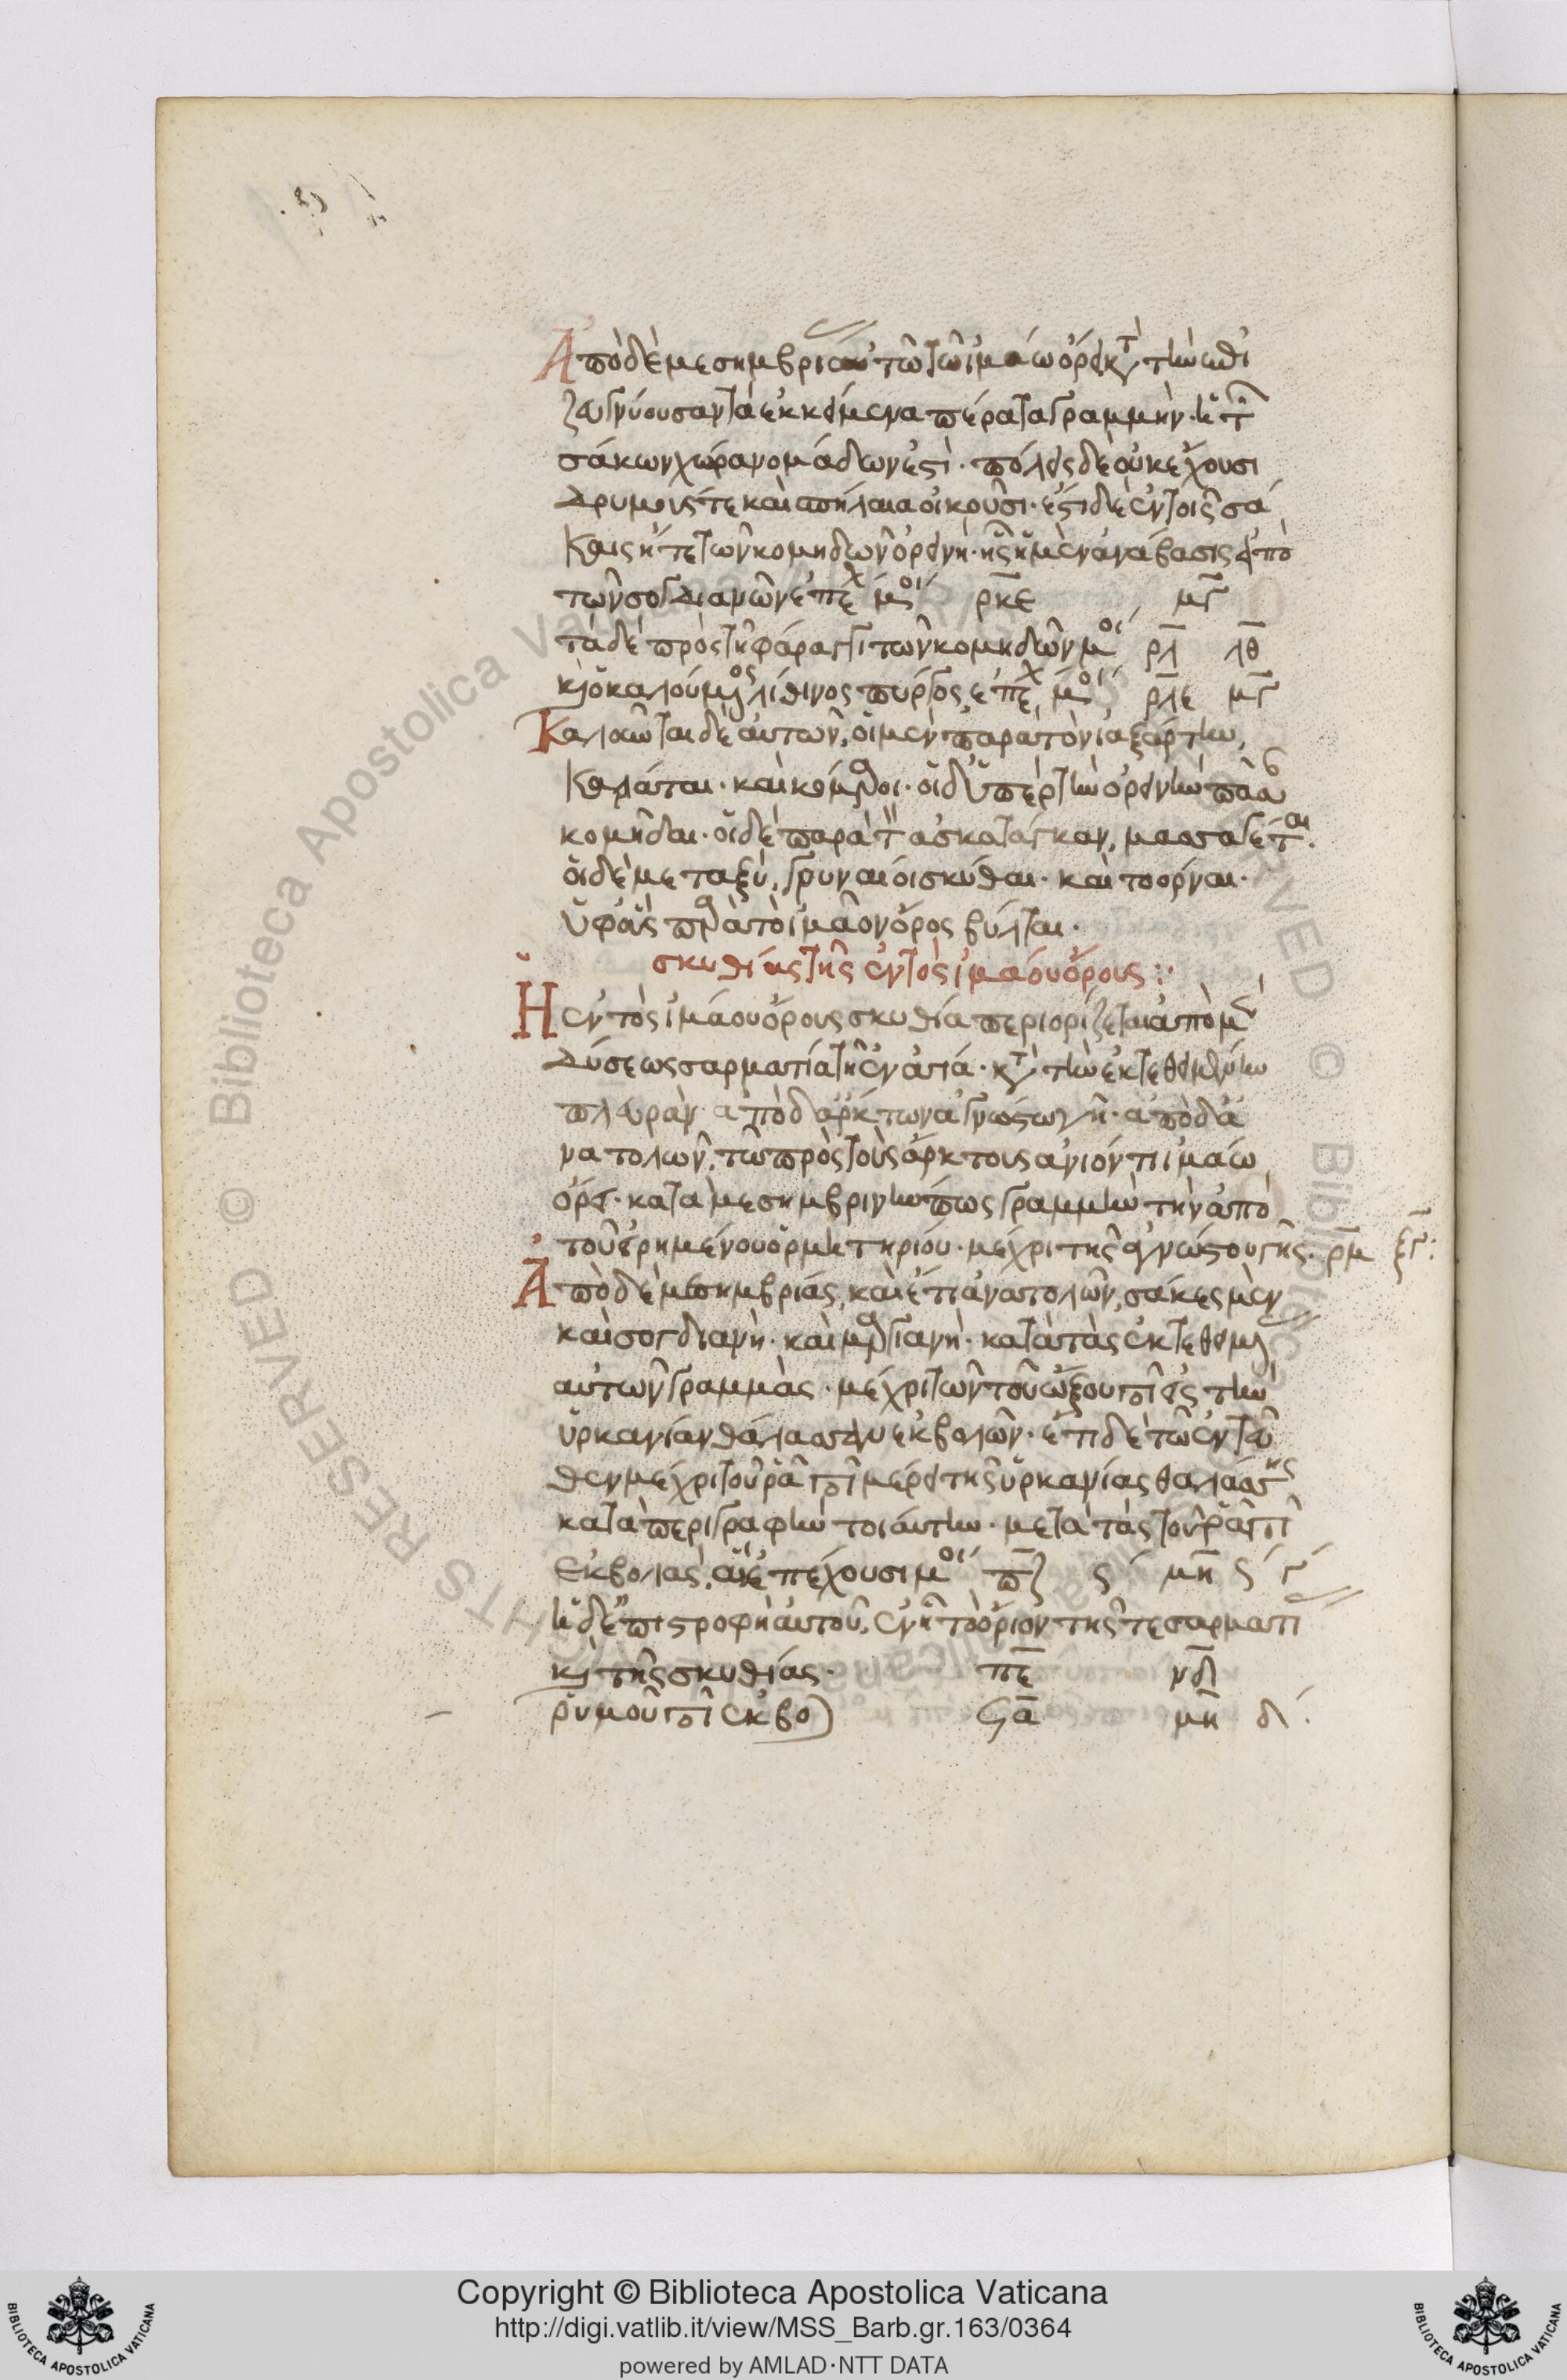 Ἀπὸ δὲ μεσημβρίας αὐτῶ τῶ ἰμάω ὄρει κτ τὴν ἐπι
ζευγνύουσαν τὰ ἐκκείμενα πέρατα γραμμήν· ἡ τ
σάκων χώρα νομάδων ἐστὶ· πόλεις δὲ οὐκ ἔχουσι
δρυμοὺς τε καὶ σπήλαια οἰκοῦσι· ἔστι δὲ ἐν τοῖς σά
καις ἥ τε τῶν κομηδῶν ὀρεινὴ· ἧς ἡ μὲν ἀνάβασις ἀπὸ
τῶν σογδιανῶν ἐπέχ μοι ρκε μγ
τὰ δὲ πρὸς τῆ φάραγγι τῶν κομηδῶν μοι ρλ λθ
κὶ ὁ καλούμος λίθινος πύργος ἐπέχ μοι ρλε μγ
Καλοῦνται δὲ αὐτῶν, οἱ μὲν παρὰ τὸν ἰαξάρτην,
καράται· καὶ κόμαροι· οἱ δ ὑπὲρ τὴν ὀρεινὴν πᾶσαν
κομῆδαι· οἱ δὲ παρὰ τ ἀσκατάγκαν, μασσαγέται.
οἱ δὲ μεταξὺ, γρυναιοι σκύθαι· καὶ τοόρναι·
ὑφ οὓς παρὰ τὸ ἰμᾶον ὄρος βύλται·
σκυθίας τῆς ἐντὸς ἰμάου ὄρους:·
Ἡ ἐντὸς ἰμάου ὄρους σκυθία περιορίζεται ἀπὸ μὲν
δύσεως σαρματία τῆ ἐν ἀσία· κτ τὴν ἐκτεθειμένην
πλευράν· ἀπὸ δ ἄρκτων ἀγνώστω γῆ· ἀπὸ δ ἀ
νατολῶν, τῶ πρὸς τοὺς ἄρκτους ἀνιόντι ἰμάω
ὄρει· κατὰ μεσημβρινήν πως γραμμὴν τὴν ἀπὸ
τοῦ εἰρημένου ὁρμητηρίου· μέχρι τῆς ἀγνώστου γῆς· ρμ ξγ:
Ἀπὸ δὲ μεσημβρίας, καὶ ἔτι ἀνατολῶν, σάκες μὲν
καὶ σογδιανὴ· καὶ μαργιανὴ· κατὰ τὰς ἐκτεθειμ
αὐτῶν γραμμὰς· μέχρι τῶν τοῦ ὤξου ποτ εἰς τὴν
ὑρκανίαν θάλασσαν ἐκβολῶν· ἔτι δὲ τῶ ἐντεῦ
θεν μέχρι τοῦ ῥᾶ ποτ μέρει τῆς ὑρκανίας θαλάσσης
κατὰ περιγραφὴν τοιαύτην· μετὰ τὰς τοῦ ῥᾶ ποτ
ἐκβολὰς, αἳ ἐπέχουσι μοι πζ ς μη ς γ
ἡ δ ἐπιστροφὴ αὐτοῦ, ἐν ἧ τὸ ὅριον τῆς τε σαρματί
κὶ τῆς σκυθίας· πε νδ
ῥυμοῦ ποτ ἐκβο ϟα μη δ.
Copyright © Biblioteca Apostolica Vaticana
http://digi.vatlib.it/view/MSS_Barb.gr.163/0364
powered by AMLAD·NTT DATA